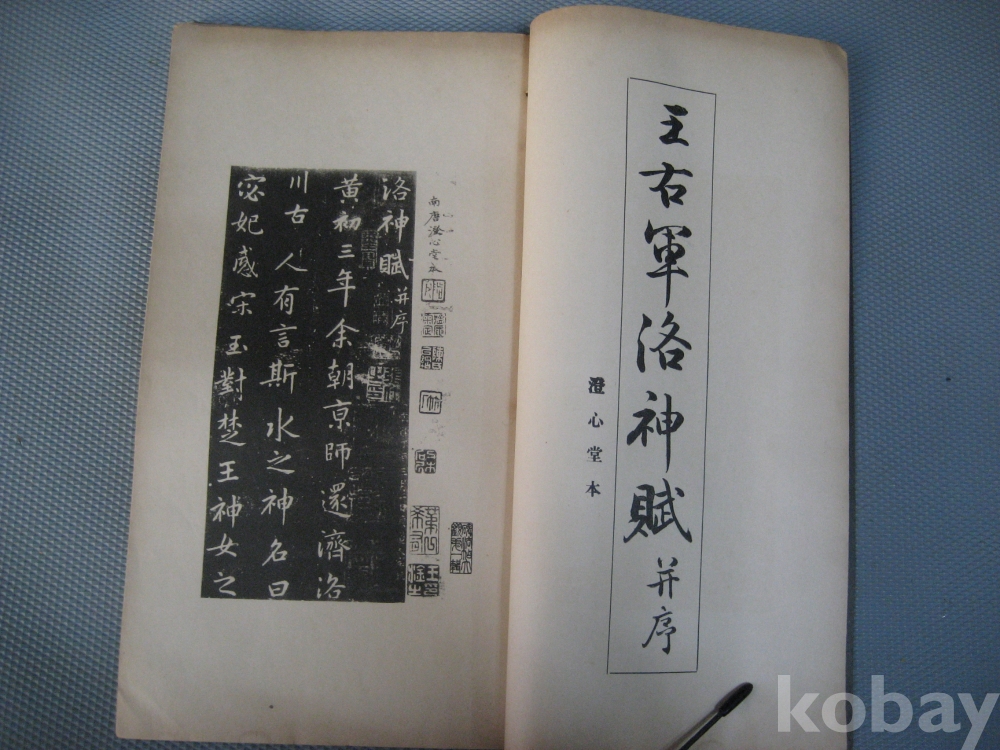 王右軍洛神賦并序
澄心堂本
南唐澄心堂本
洛神賦并序
黃初三年余朝京師還濟洛
川古人有言斯水之神名曰
宓妃感宋玉對楚王神女之
kobay